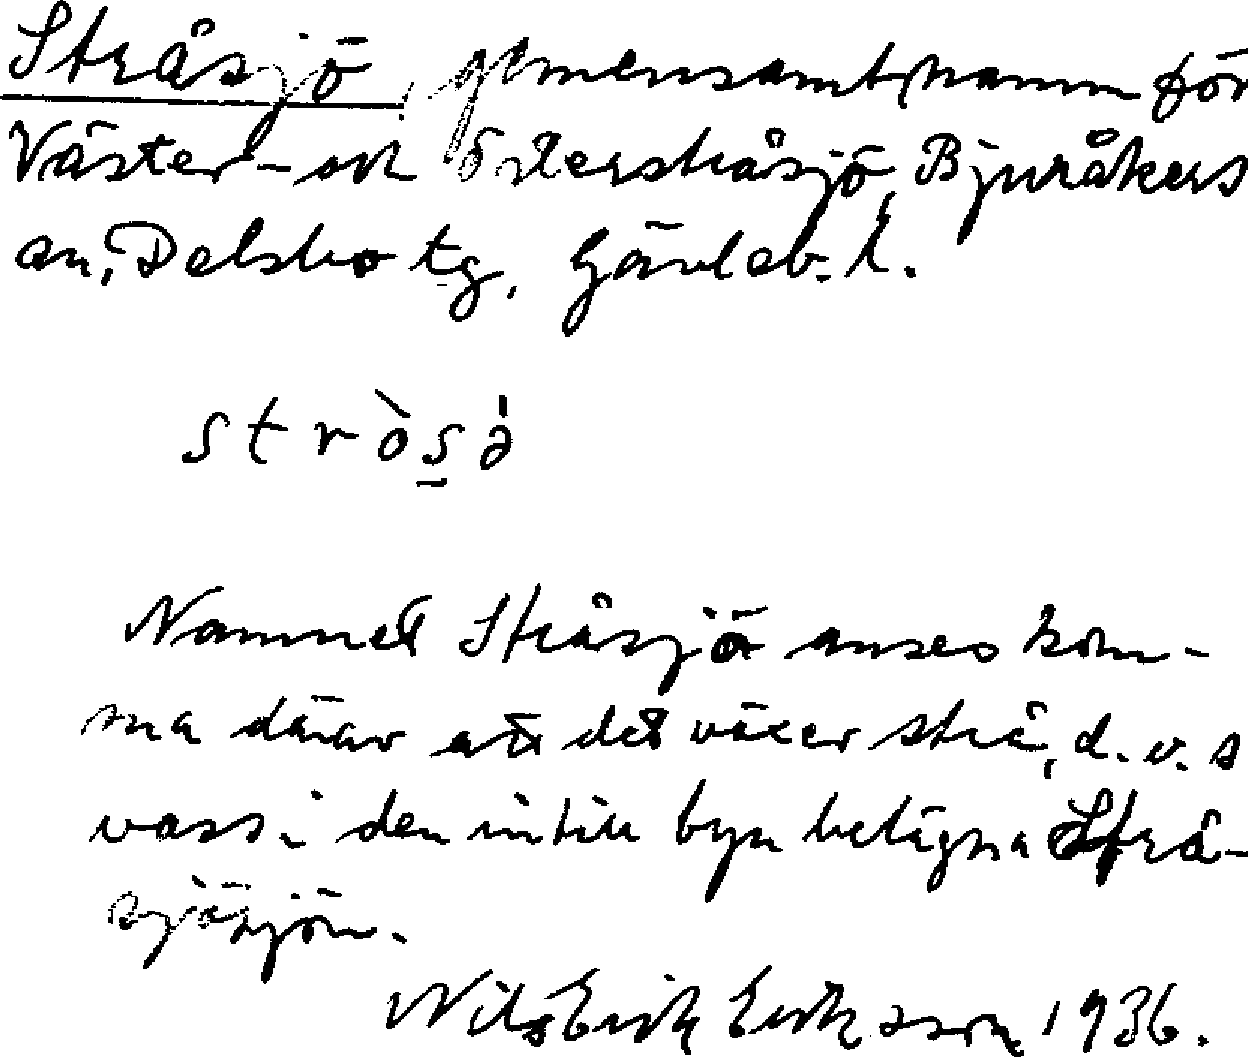 Stråsjö, gemensamt namn för
Väster- och Österstråsjö, Bjuråkers
sn, Delsbo tg, Gävleb. l.
stròs̱ə̀
Namnet Stråsjö anses kom-
ma därav att det växer strå, d.v.s
vass i den intill byn belägna Strå-
sjösjön.
Nils Erik Eriksson 1936.